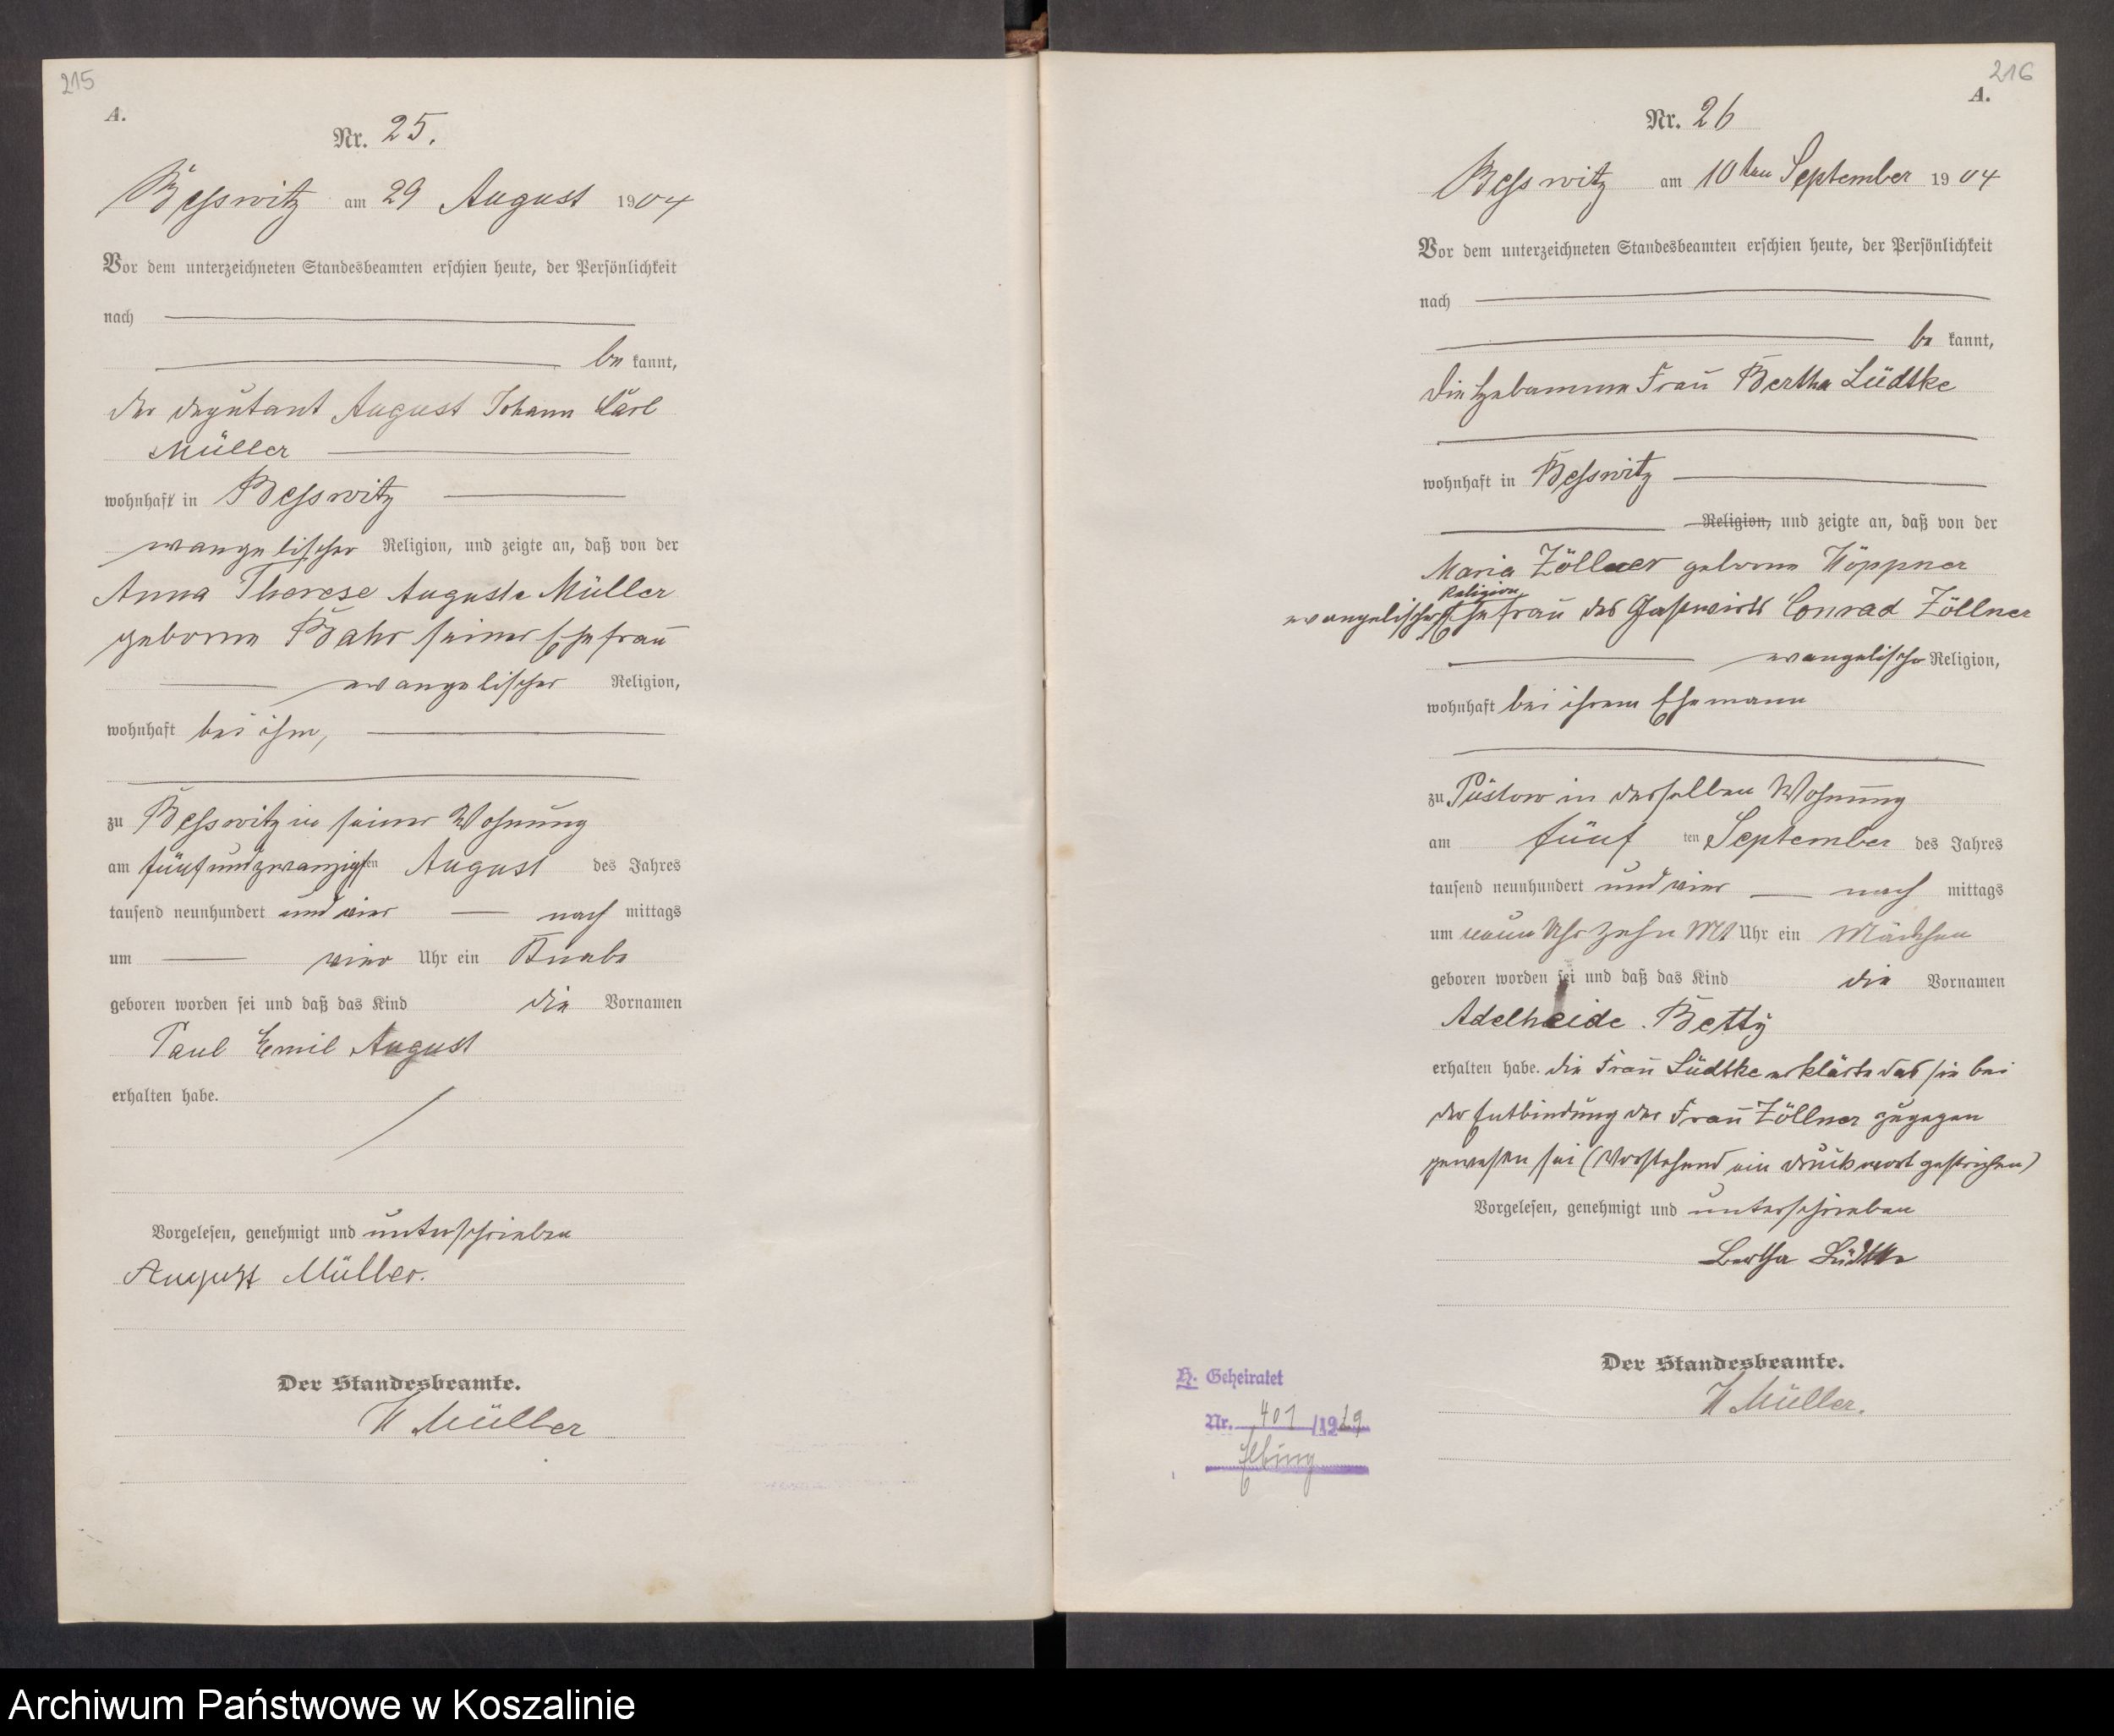 215
A.
Nr. 25.
Besswitz am 29 August 1904
Vor dem unterzeichneten Standesbeamten erschien heute, der Persönlichkeit
nach
be kannt,
der Deputant August Johann Carl
Müller
wohnhaft in Besswitz
evangelischer Religion, und zeigte an, daß von der
Anna Therese Auguste Müller
geborne Bahr seiner Ehefrau
evangelischer Religion,
wohnhaft bei ihm,
zu Besswitz in seiner Wohnung
am fünfundzwanzigsten August des Jahres
tausend neunhundert und vier nach mittags
um vier Uhr ein Knabe
geboren worden sei und daß das Kind die Vornamen
Paul Emil August
erhalten habe.
Vorgelesen, genehmigt und unterschrieben
August Müller.
Der Standesbeamte.
H Müller
216
A.
Nr. 26
Besswitz am 10ten September 1904
Vor dem unterzeichneten Standesbeamten erschien heute, der Persönlichkeit
nach
be kannt,
die Hebamme Frau Bertha Lüdtke
wohnhaft in Besswitz
Religion, und zeigte an, daß von der
Maria Zöllner geborne Höppner
Religion
evangelischer Ehefrau des Gastwirts Conrad Zöllner
evangelischer Religion,
wohnhaft bei ihrem Ehemann
zu Püstow in derselben Wohnung
am fünf ten September des Jahres
tausend neunhundert und vier nach mittags
um neun Uhr zehn Mt Uhr ein Mädchen
geboren worden sei und daß das Kind die Vornamen
Adelheide Betty
erhalten habe. die Frau Lüdtke erklärte das sie bei
der Entbindung der Frau Zöllner zugegen
gewesen sei (Vorstehend ein Druckwort gestrichen)
Vorgelesen, genehmigt und unterschrieben
Bertha Lüdtke
Der Standesbeamte.
H Müller.
H. Geheiratet
Nr. 401 /1929
Elbing
Archiwum Państwowe w Koszalinie